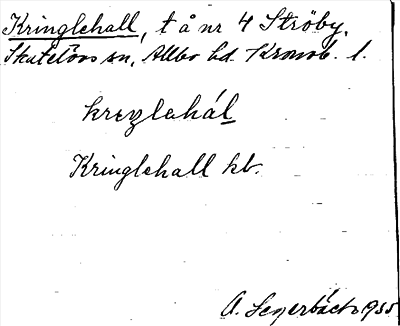 Kringlehall, t å nr 4 Ströby,
Skatelövs sn, Allbo hd. Kronob. l.
kreŋlahál
Kringlehall kb.
B. Segerbäck 1935